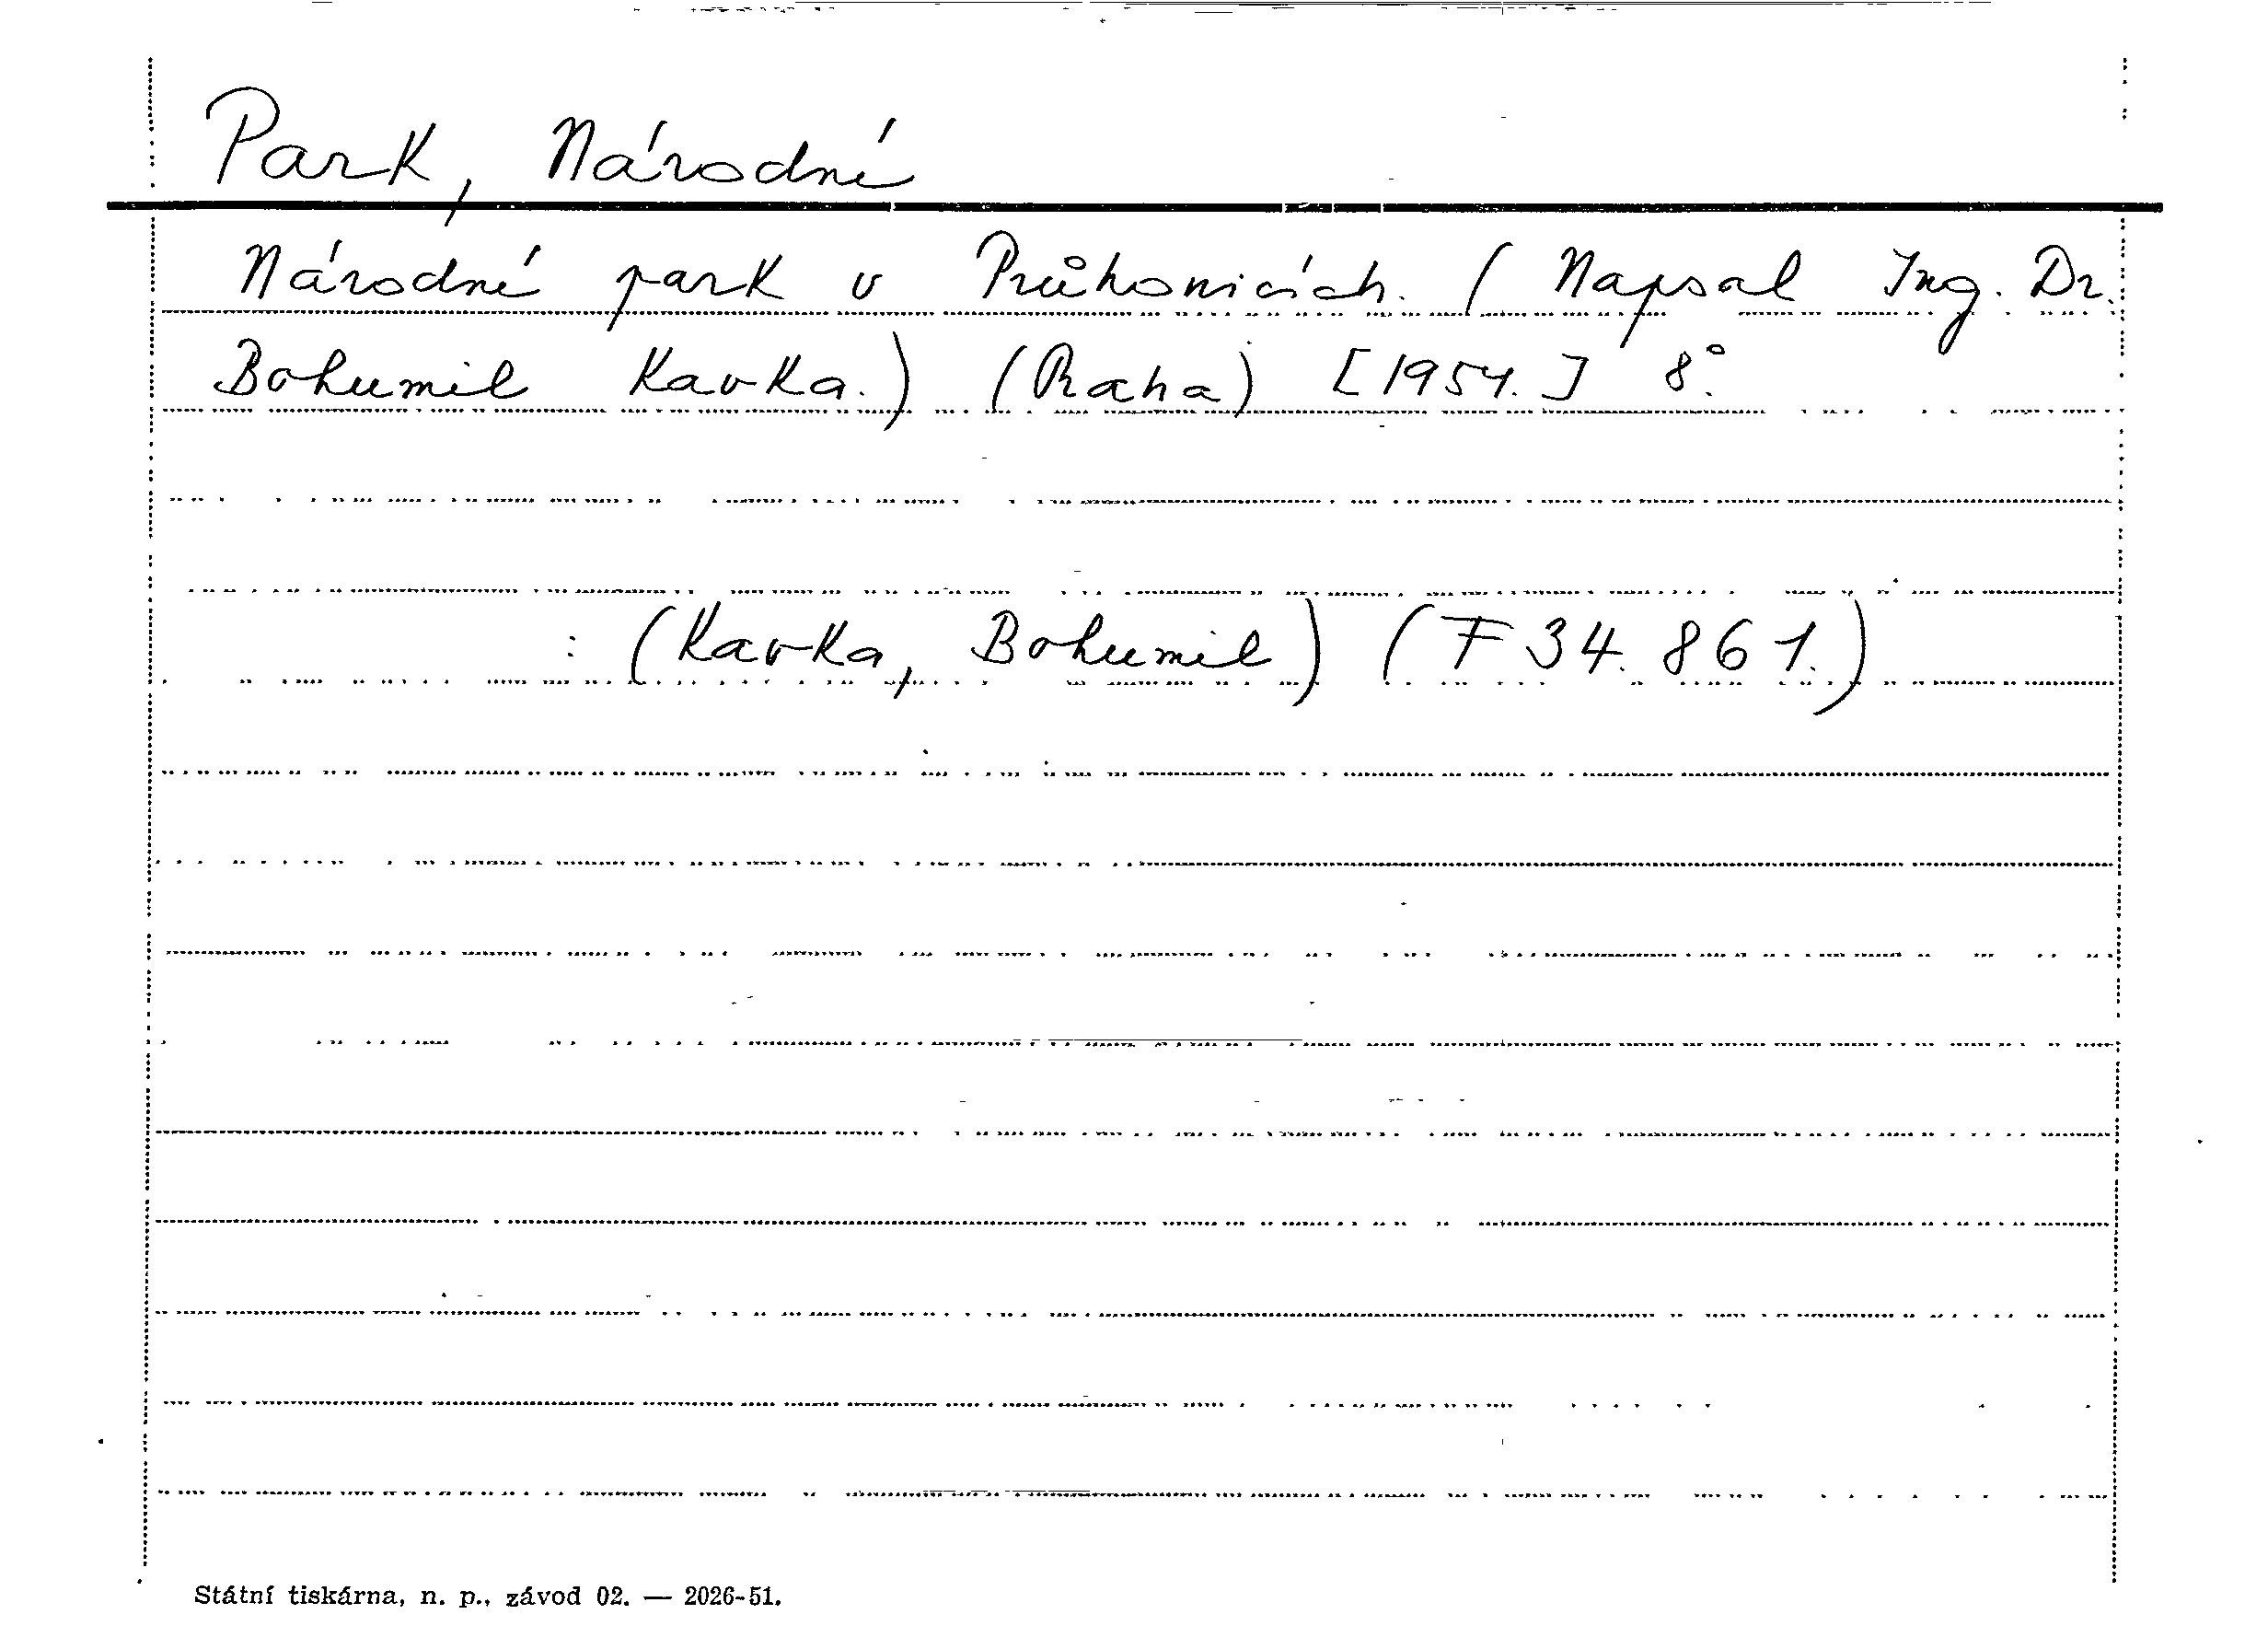 Park, Národní
Národní park v Průhonicích. (Napsal Ing. Dr.
Bohumil Kavka.) (Praha) [1954.] 8°.
: (Kavka, Bohumil) (F 34.861.)
Státní tiskárna, n. p., závod 02. — 2026-51.